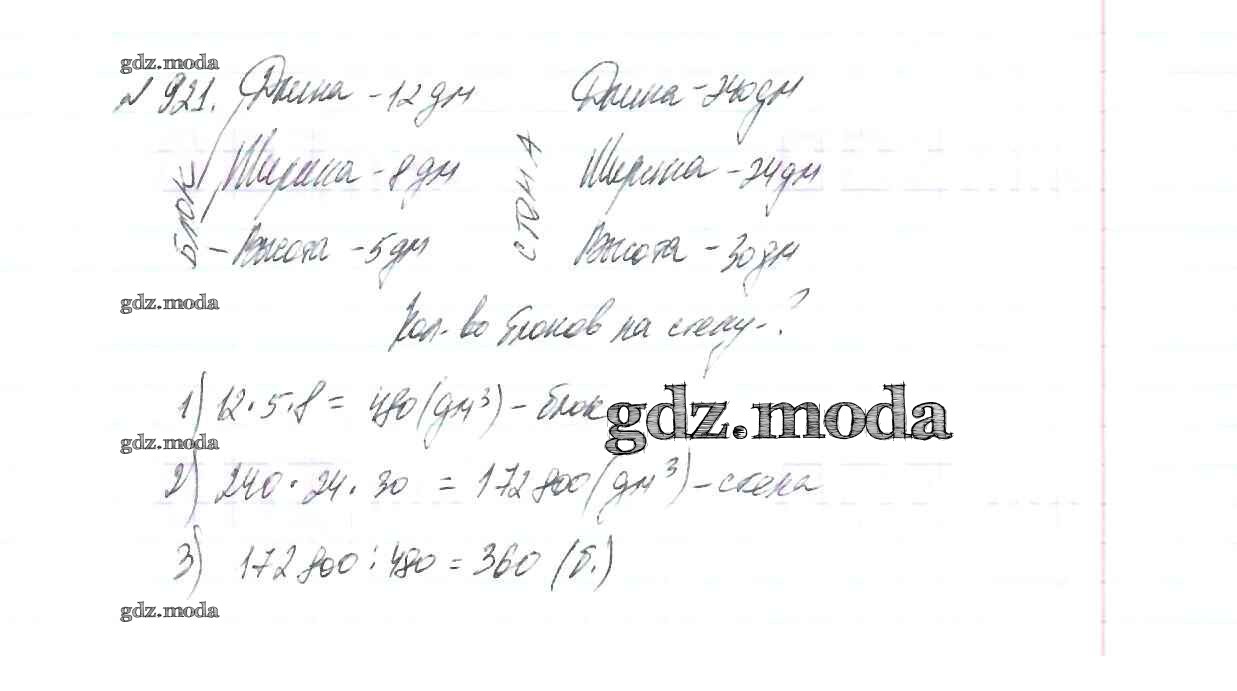 gdz.moda
№ 921. Длина - 12 дм Длина - 240 дм
БЛОК Ширина - 8 дм СТЕНА Ширина - 24 дм
Высота - 5 дм Высота - 30 дм
gdz.moda
Кол-во блоков на стену - ?
1) 12 · 5 · 8 = 480 (дм³) - блок
gdz.moda
gdz.moda
2) 240 · 24 · 30 = 172 800 (дм³) - стена
3) 172 800 : 480 = 360 (б.)
gdz.moda